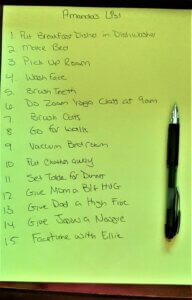 Amanda's List
1 Put Breakfast Dishes in Dishwasher
2 Make Bed
3 Pick Up Room
4 Wash Face
5 Brush Teeth
6 Do Zoom Yoga Class at 9am
7 Brush Cats
8 Go for Walk
9 Vacuum Bedroom
10 Put Clothes away
11 Set Table for Dinner
12 Give Mom a Big HUG
13 Give Dad a High Five
14 Give a Noogie
15 Facetime with Ellie